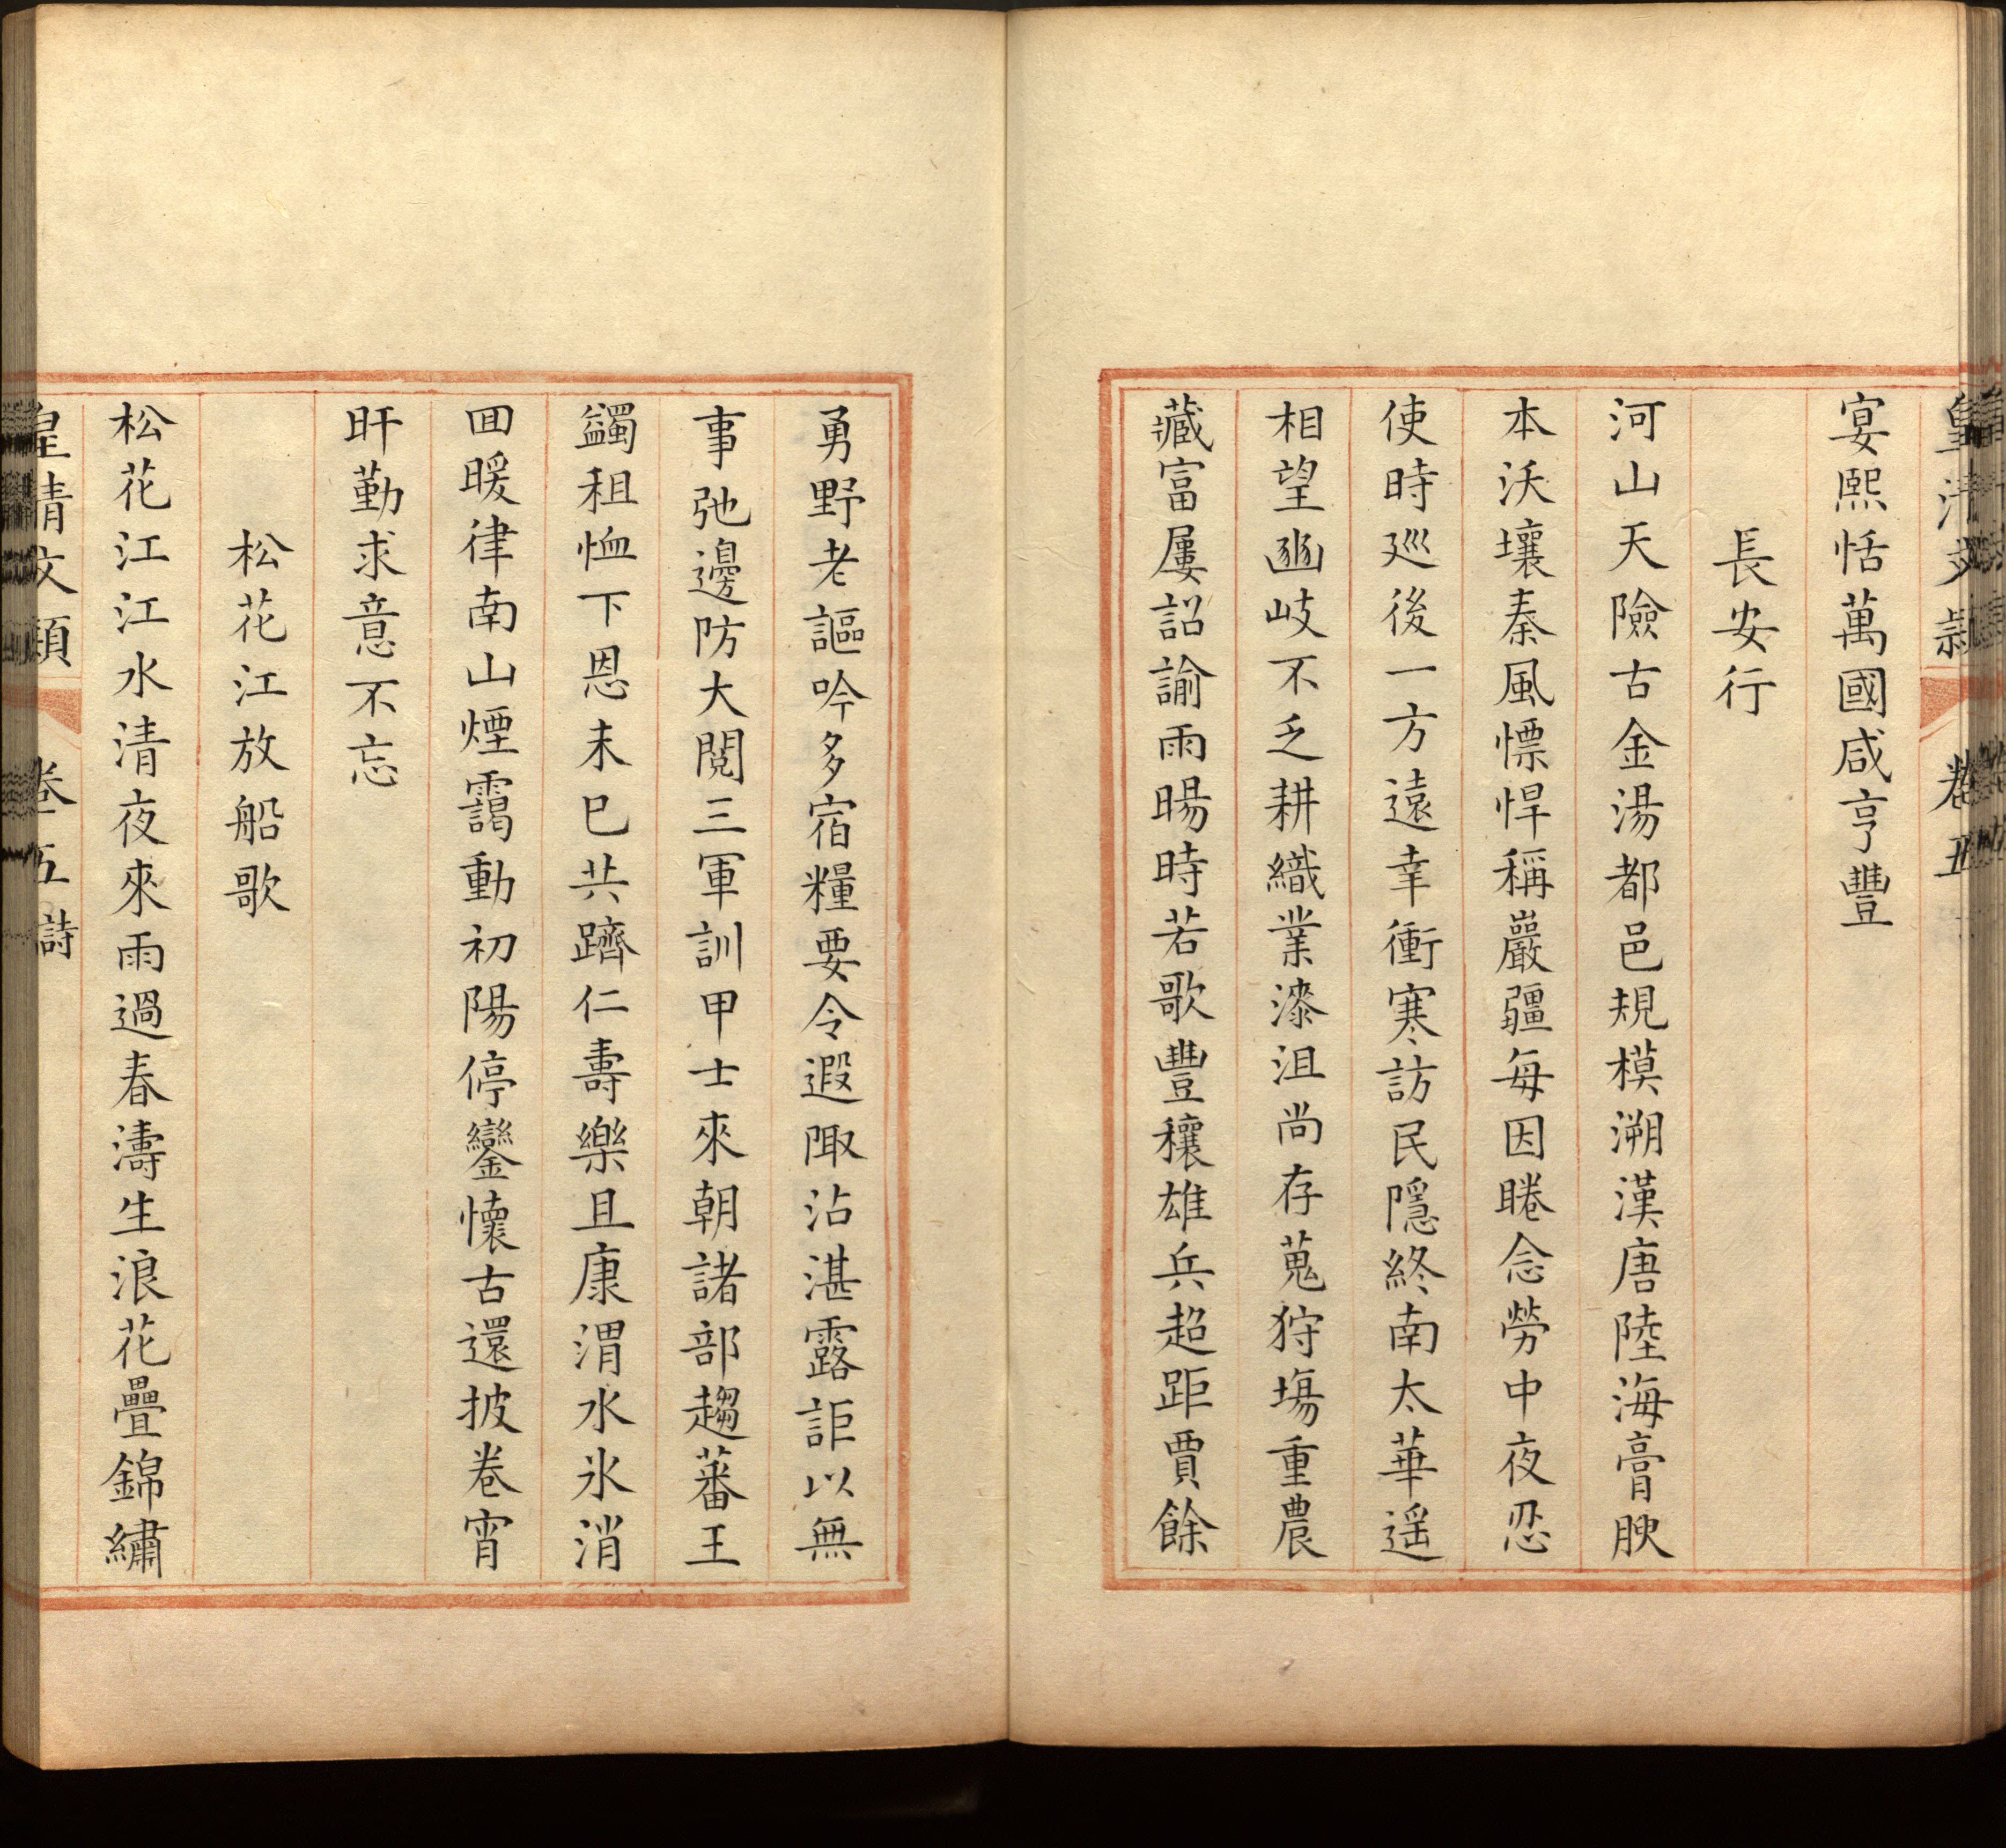 皇清文穎 卷五
宴熙恬萬國咸亨豐
長安行
河山天險古金湯都邑規模溯漢唐陸海膏腴
本沃壤秦風慓悍稱嚴疆每因睠念勞中夜忍
使時廵後一方遠幸衝寒訪民隱終南太華遥
相望豳岐不乏耕織業漆沮尚存蒐狩塲重農
藏富屢詔諭雨暘時若歌豐穰雄兵超距賈餘
勇野老謳吟多宿糧要令遐陬沾湛露詎以無
事弛邊防大閱三軍訓甲士來朝諸部趨蕃王
蠲租恤下恩未已共躋仁壽樂且康渭水氷消
囬暖律南山煙靄動初陽停鑾懷古還披卷宵
旰勤求意不忘
松花江放船歌
松花江江水清夜來雨過春濤生浪花疊錦繡
皇清文穎 卷五 詩